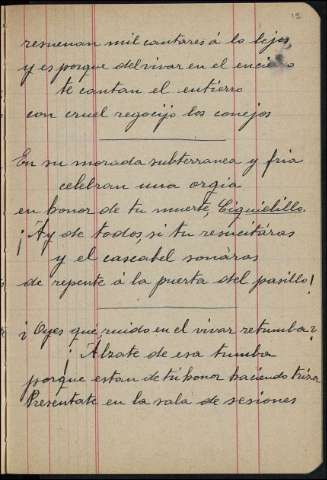 12
resuenan mil cantares á lo lejos
y es porque del vivar en el encierro
te cantan el entierro
con cruel regocijo los conejos
En su morada subterranea y fria
celebran una orgia
en honor de tu muerte,
¡Ay de todos, si tu resucitáras
y el cascabel sonáras
de repente á la puerta del pasillo!
¿Oyes que ruido en el vivar retumba?
¡Alzate de esa tumba
porque estan de tu honor haciendo triza
Presentate en la sala de sesiones